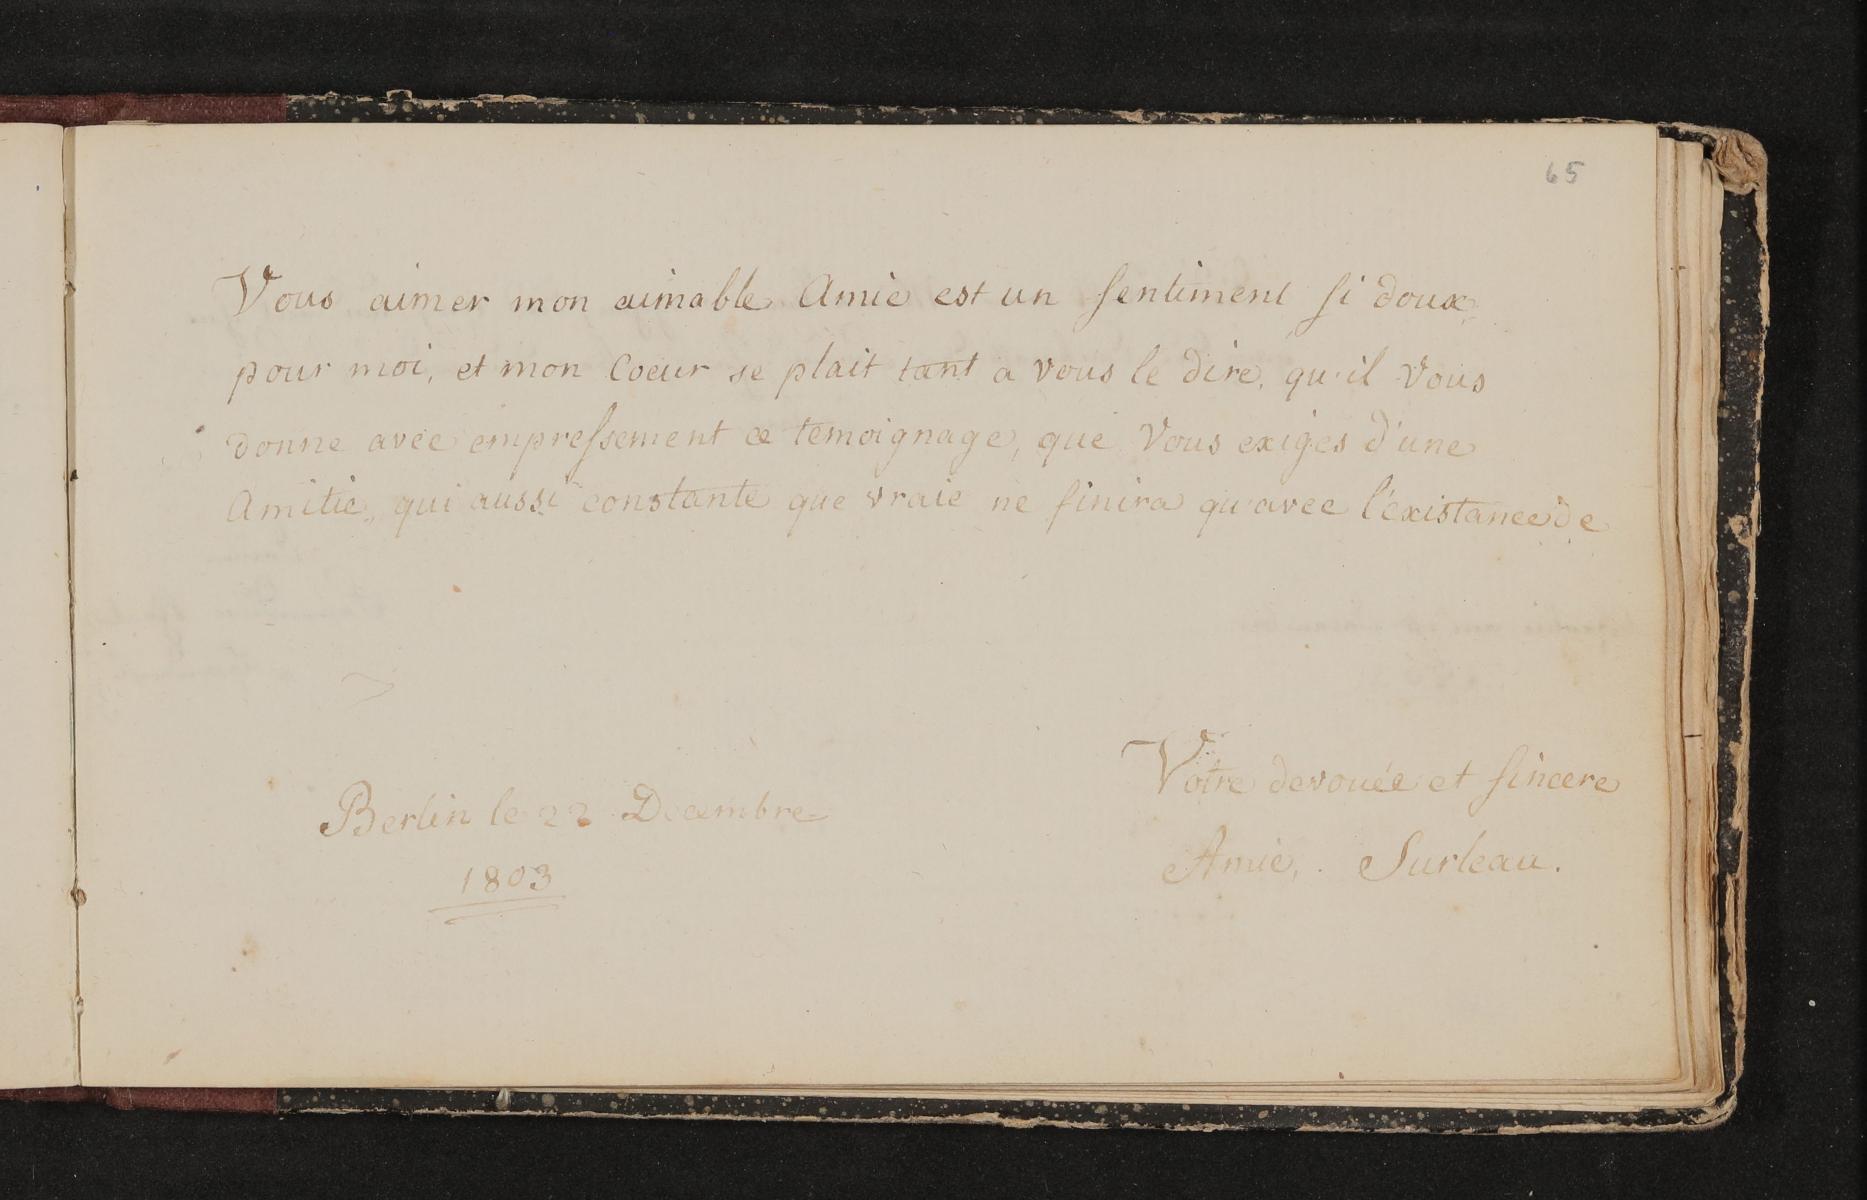 65
Vous aimer mon aimable Amie est un sentiment si doux
pour moi, et mon Coeur se plait tant a vous le dire, qu'il Vous
donne avec empressement ce temoignage, que Vous exigés d'une
Amitie, qui aussi constante que vraie ne finira qu'avec l'éxistance de
Votre devouée et sincere
Amie, Surleau.
Berlin le 22 Decembre
1803